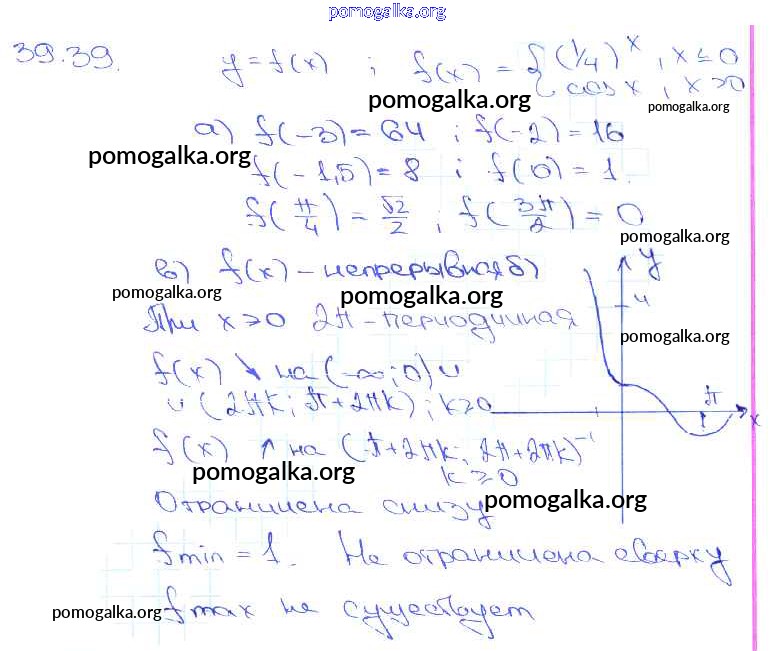 pomogalka.org
39.39. y = f(x) ; f(x) = { (1/4)^x , x ≤ 0
cos x , x > 0
pomogalka.org pomogalka.org
а) f(-3) = 64 ; f(-2) = 16
pomogalka.org
f(-1,5) = 8 ; f(0) = 1.
f(π/4) = √2/2 ; f(3π/2) = 0
pomogalka.org
в) f(x) - непрерывная б)
pomogalka.org pomogalka.org
y
4
При x > 0 2π - периодичная
pomogalka.org
f(x) ↘ на (-∞; 0) ∪
∪ (2πk; π + 2πk) ; k ≥ 0
π
x
-1
f(x) ↗ на (π + 2πk; 2π + 2πk)
k ≥ 0
pomogalka.org
Ограничена снизу
pomogalka.org
fmin = 1. Не ограничена сверху
pomogalka.org
fmax не существует